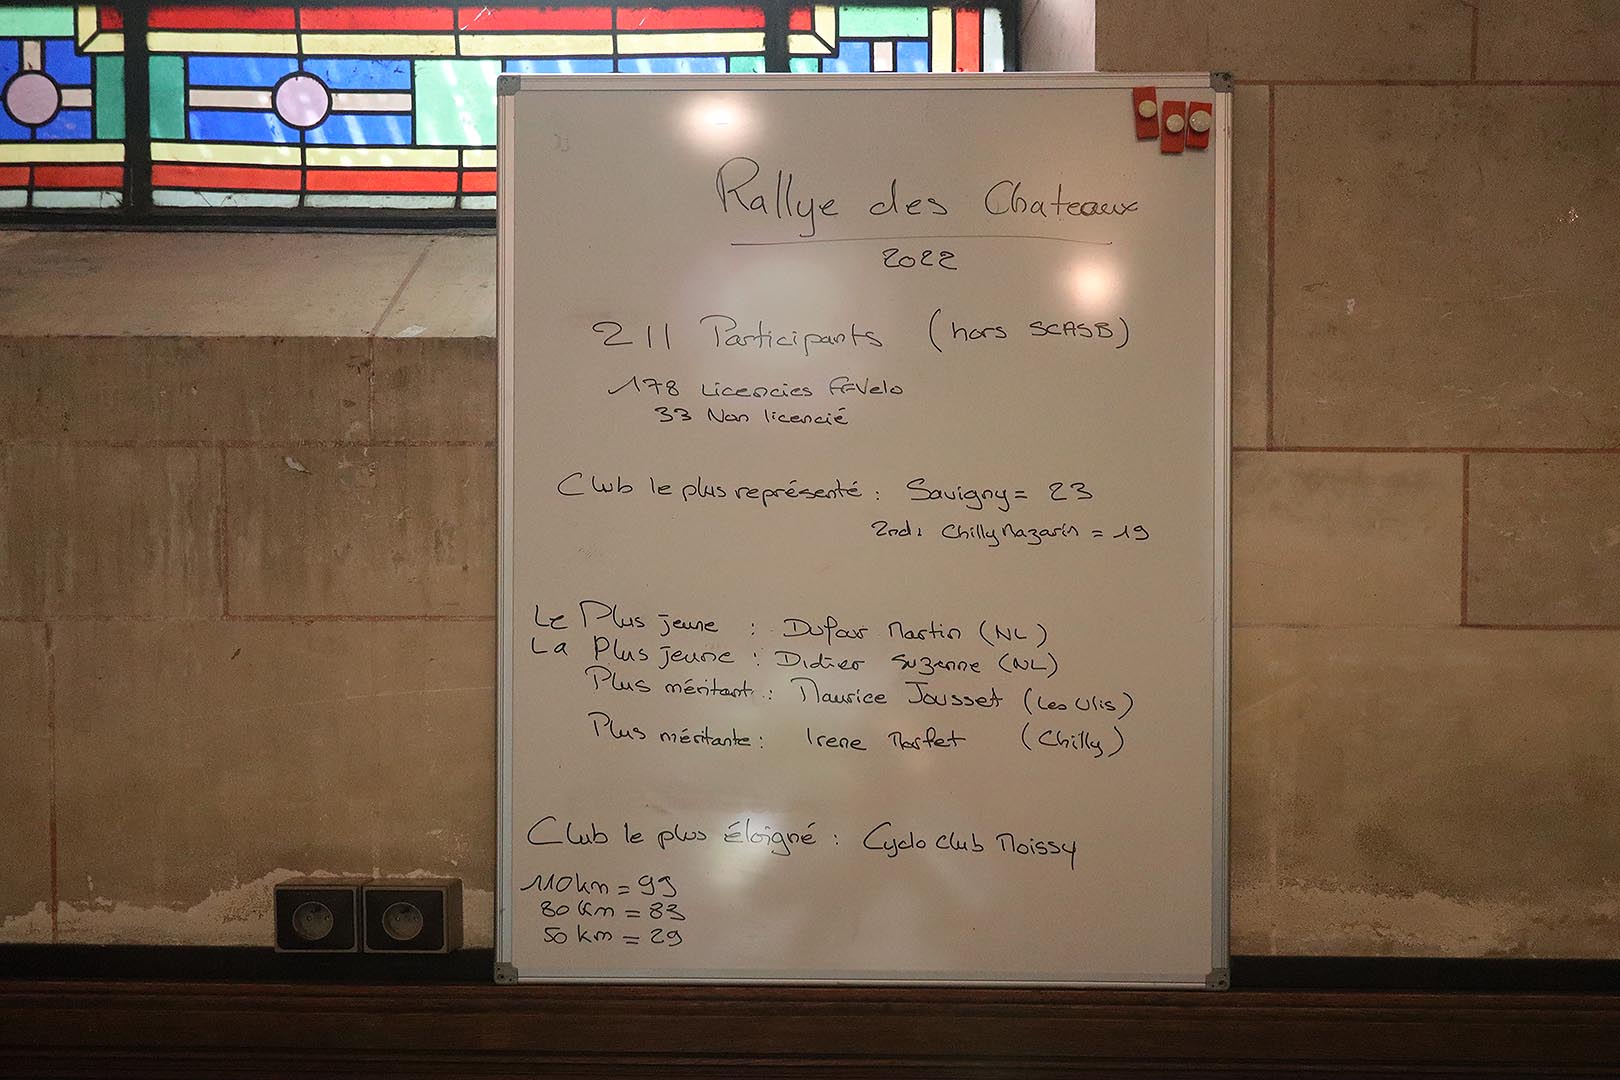 Rallye des Chateaux
2022
211 Participants (hors SCASB)
178 Licencies FFVelo
33 Non licencié
Club le plus représenté : Savigny = 23
2nd : Chilly Mazarin = 19
Le Plus jeune : Dufour Martin (NL)
La Plus jeune : Didier Suzanne (NL)
Plus méritant : Maurice Jousset (Les Ulis)
Plus méritante : Irene Morfet (Chilly)
Club le plus éloigné : Cyclo club Moissy
110 km = 99
80 km = 83
50 km = 29